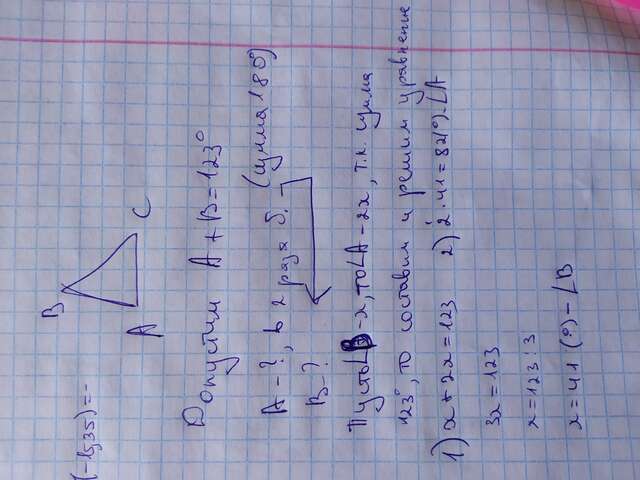 (-15,35)=-
B
A
C
Допустим A+B=123°
A-?, в 2 раза б. (сумма 180)
B-?
Пусть∠B-x, то∠A-2x, т.к. сумма
123°, то составим и решим уравнение
1) x+2x=123 2) 2·41=82(°)-∠A
3x=123
x=123:3
x=41 (°)-∠B